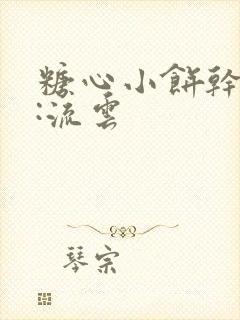 糖心小餅幹
:流雲
琴宗